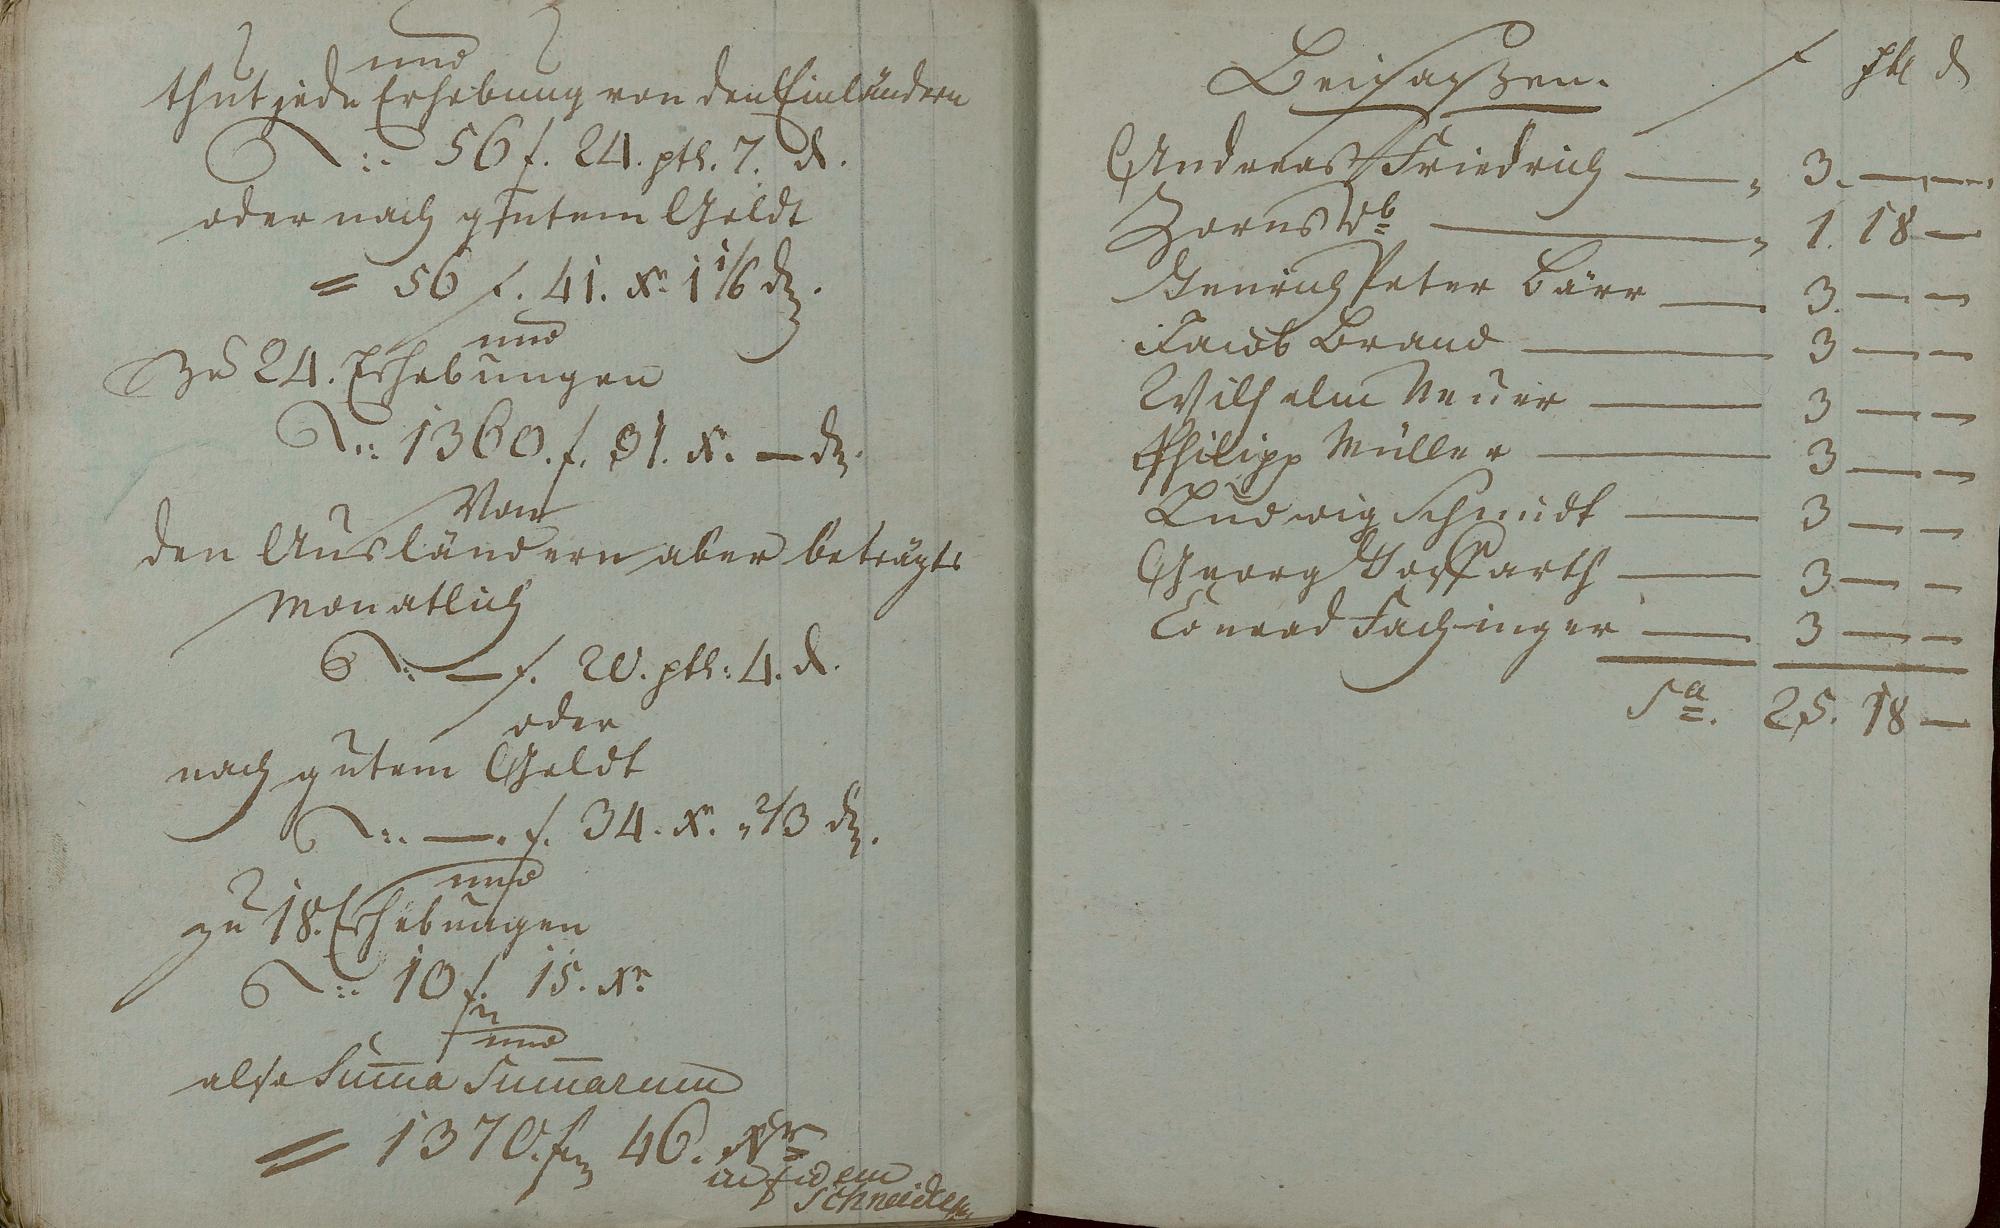 und
thut jede Erhebung von den Einländern
56 f. 24. pth. 7. d.
oder nach gutem Geldt
= 56 f. 41. Xr 1 1/6 d.
und
zu 24. Erhebungen
1360. f. 31. Xr. — d.
Von
den Ausländern aber beträgts
Monatlich
— f. 20. pth: 4. d.
oder
nach gutem Geldt
—. f. 34. Xr. „ 2/3 d.
und
zu 18. Erhebungen
10 f. 15. Xr
und
also Suma Sumarum
= 1370. f 46. Xr
Schneider
Beisaszen. f pth d
Andreas Friedrich — „ 3. — —
Zorns Wb — „ 1. 18 —
Henrich Peter Bärr — 3. — —
Jacob Brand — 3 — —
Wilhelm Neuer — 3 — —
Philipp Müller — 3 — —
Ludwig Schmidt — 3 — —
Georg Hoffarth — 3 — —
Conrad Fachinger — 3 — —
Sa. 25. 18 —